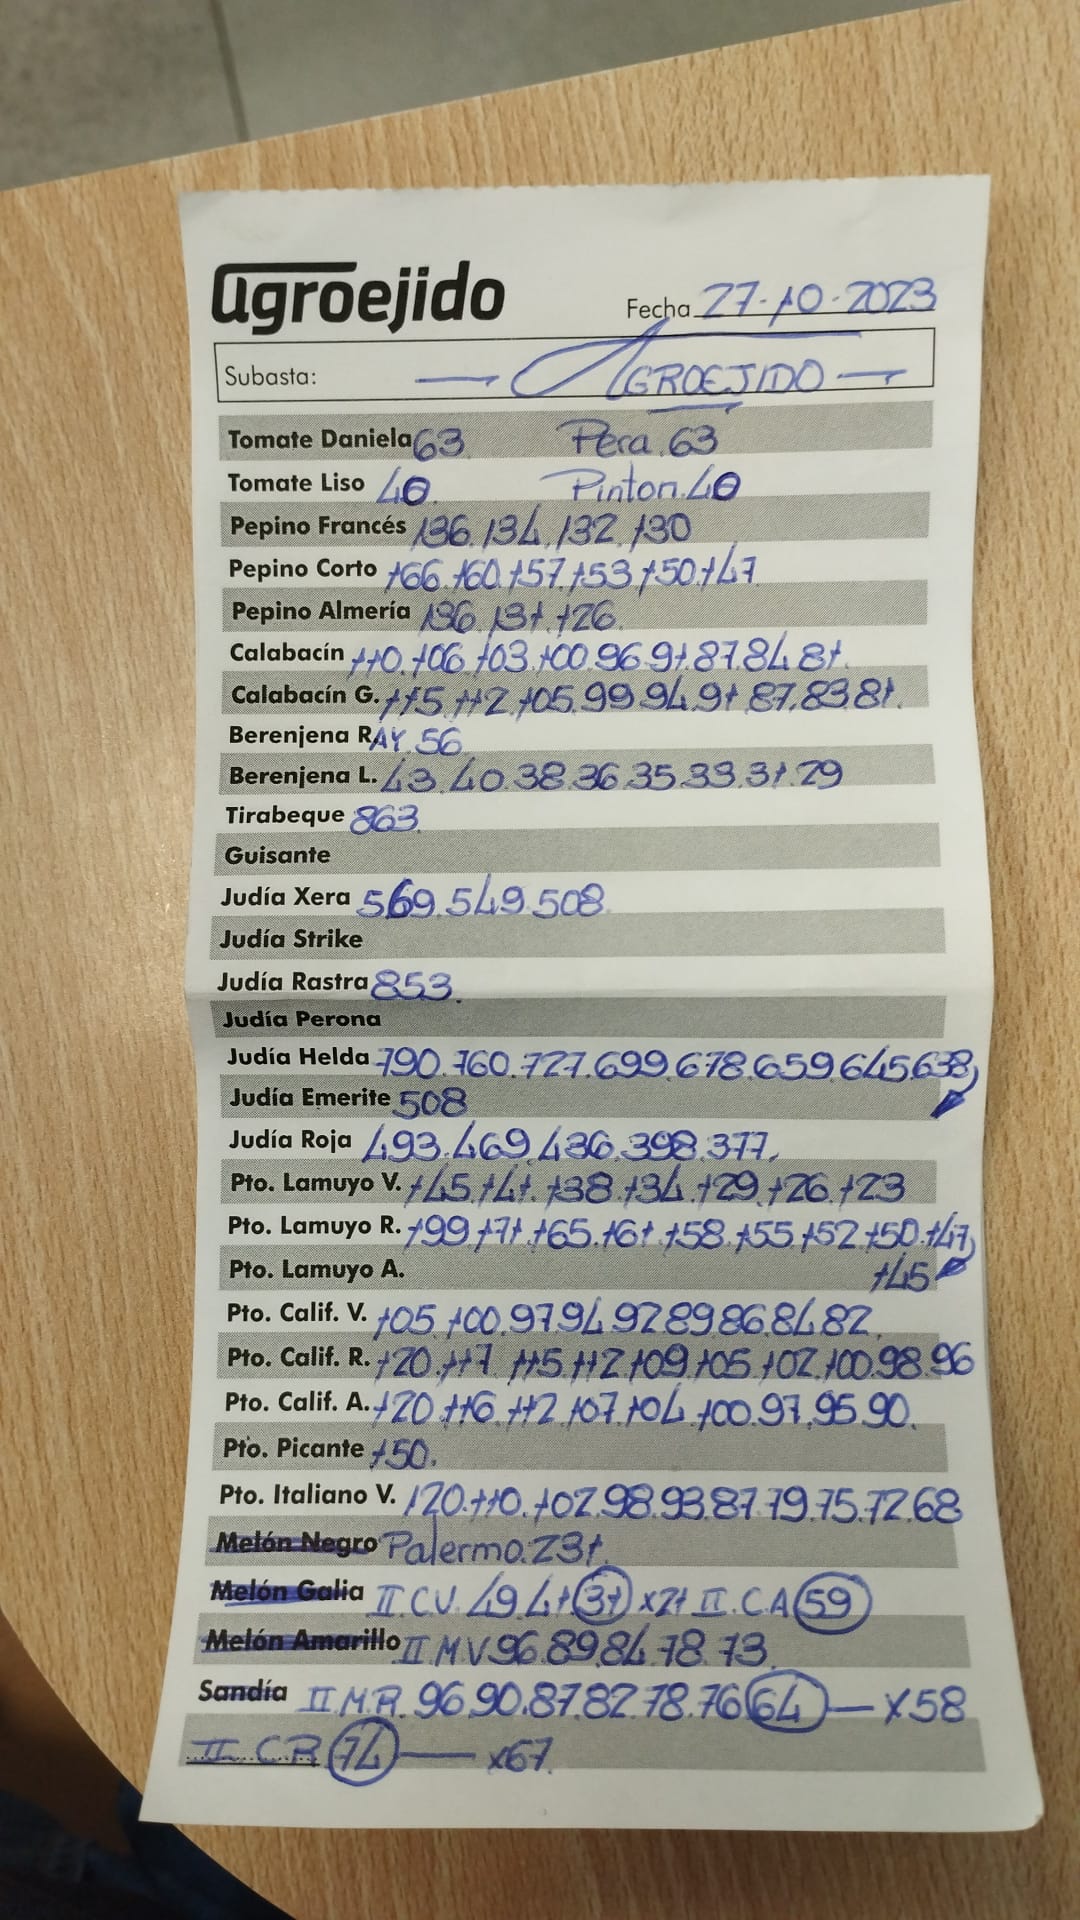 agroejido
Fecha 27-10-2023
Subasta: — AGROEJIDO —
Tomate Daniela 63 Pera. 63
Tomate Liso 40. Pinton. 40
Pepino Francés 136. 134. 132. 130
Pepino Corto 166. 160. 157. 153. 150. 147
Pepino Almería 136. 131. 126.
Calabacín 110. 106. 103. 100. 96. 91. 87. 84. 81.
Calabacín G. 115. 112. 105. 99. 94. 91. 87. 83. 81.
Berenjena RAY. 56
Berenjena L. 43. 40. 38. 36. 35. 33. 31. 29
Tirabeque 863.
Guisante
Judía Xera 569. 549. 508
Judía Strike
Judía Rastra 853.
Judía Perona
Judía Helda 790. 760. 727. 699. 678. 659. 645. 638
Judía Emerite 508
Judía Roja 493. 469. 436. 398. 377.
Pto. Lamuyo V. 145. 141. 138. 134. 129. 126. 123
Pto. Lamuyo R. 199. 171. 165. 161. 158. 155. 152. 150. 147
Pto. Lamuyo A. 145
Pto. Calif. V. 105. 100. 97. 94. 92. 89. 86. 84. 82.
Pto. Calif. R. 120. 117. 115. 112. 109. 105. 102. 100. 98. 96
Pto. Calif. A. 120. 116. 112. 107. 104. 100. 97. 95. 90.
Pto. Picante 150.
Pto. Italiano V. 120. 110. 102. 98. 93. 87. 79. 75. 72. 68
Melón Negro Palermo. 231.
Melón Galia II. C.V. 49. 41. 31 x21 II. C.A 59
Melón Amarillo II M.V. 96. 89. 84. 78. 73.
Sandía II M.R. 96. 90. 87. 82. 78. 76. 64 — x58
II C.R. 74 — x67.